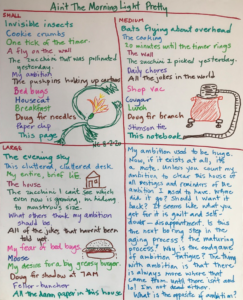 Ain't The Morning Light Pretty
SMALL
Invisible insects
Cookie crumbs
One tick of the timer
A fly on the wall
The zucchini that was picked
yesterday.
My ambition
The pushpins holding up cartoons
Bed bugs
Housecat
Breakfast
Doug fir needles
Paper clip
This page
MEDIUM
Bats flying about overhead
The cooking
20 minutes until the timer rings
The wall
The zucchini I picked yesterday.
Daily chores
All the jokes in the world
Shop vac
Cougar
Lunch
Doug fir branch
Stimson tie
This notebook
LARGE
The evening sky
This cluttered cluttered desk.
My entire, brief life
The house
That zucchini I can't see which
even now is growing, in hiding
to monstrous size.
What others think my ambition
should be
All of the jokes that haven't been
told
My fear of bed bugs
Moose
My desire for a big greasy burger
Doug fir shadow at 7AM
Feller-buncher
All the damn paper in this house.
My ambition used to be huge.
Now, if it exists at all, it's
a mote. Unless you count my
ambition to clear this house of
all and reminders of
ambition I used to have. Where
did it go? Should I want it
back? It seems like what you
get for it is guilt and self-
disappointment. Is this
the next boring step in the
aging process? The maturing
process? May is the endgame
of ambition fatigue? The thing
with ambition is that there
is always more where that
came from until there isn't and
lo! I'm not dead either.
What is the opposite of ambition?